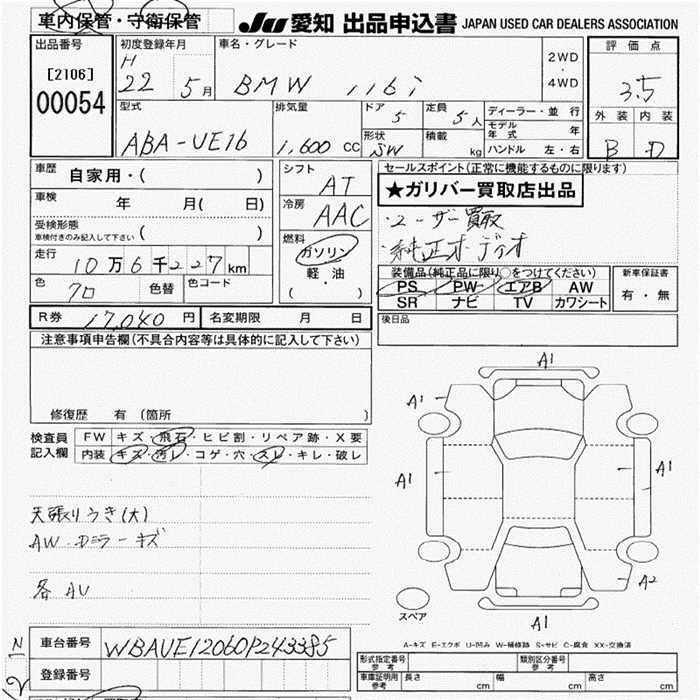 車内保管・守衛保管
JU 愛知 出品申込書 JAPAN USED CAR DEALERS ASSOCIATION
出品番号 初度登録年月 車名・グレード 2WD・4WD 評価点
[2106] H 22 5月 BMW 116i 3.5
00054
型式 排気量 ドア 5 定員 5人 ディーラー・並行 外装 内装
ABA-UE16 1,600 cc 形状 SW 積載 kg モデル年式 年 B D
ハンドル 左・右
車歴 自家用・( ) シフト AT セールスポイント(正常に機能するものに限ります)
★ガリバー買取店出品
車検 年 月( 日) 冷房 AAC ・ユーザー買取
受検形態 ( ) ・純正オーディオ
車検付きのみ記入して下さい
走行 10万6千227km 燃料 ガソリン・軽・油 ( ) 装備品(純正品に限り○をつけてください) 新車保証書
色 クロ 色替 色コード PS PW エアB AW 有・無
SR ナビ TV カワシート
R券 17,040円 名変期限 月 日 後日品
注意事項申告欄(不具合内容等は具体的に記入して下さい)
修復歴 有 (箇所 )
検査員 FW キズ・飛石・ヒビ割・リペア跡・X要
記入欄 内装 キズ・汚レ・コゲ・穴・スレ・キレ・破レ
天張りうき(大)
AW・Dミラーキズ
各AU
A1
A1 A1
A1 A1
A2
A1
スペア
A-キズ E-エクボ U-凹み W-補修跡 S-サビ C-腐食 XX-交換済
車台番号 WBAUE12060P243385
登録番号
形式指定番号 類別区分番号
車庫証明用参考 長さ cm 幅 cm 高さ cm